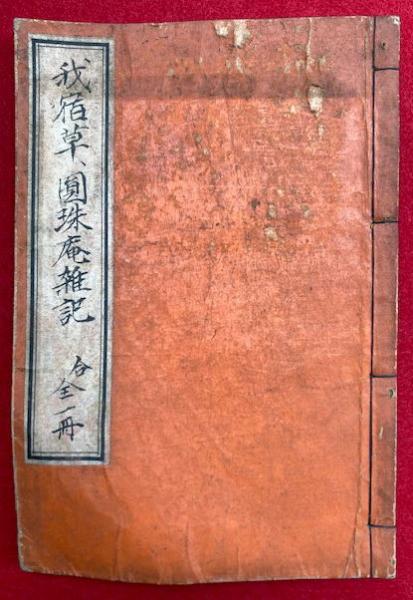 我宿草、圓珠庵雑記
合全一冊